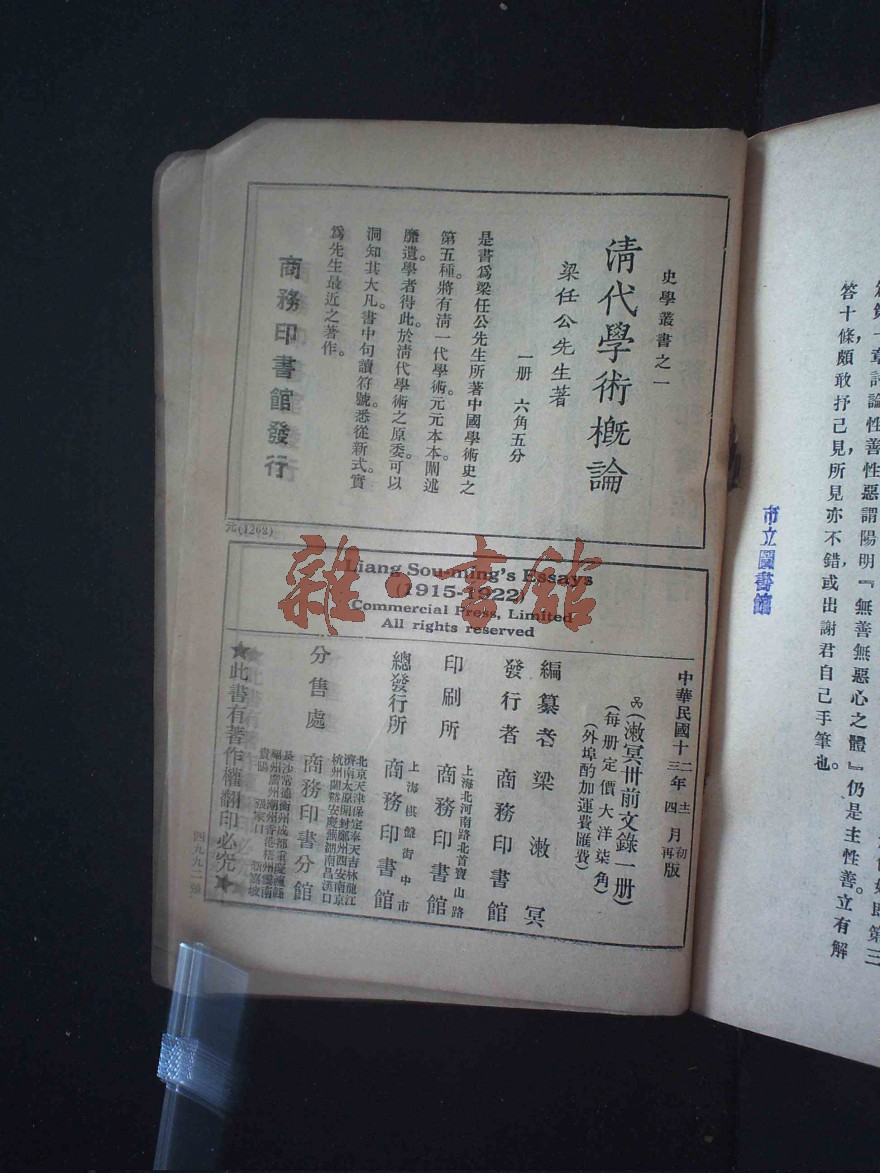 史學叢書之一
清代學術概論
梁任公先生著
一册 六角五分
是書爲梁任公先生所著中國學術史之
第五種。將有清一代學術元元本本。闡述
靡遺。學者得此。於清代學術之原委。可以
洞知其大凡。書中句讀符號。悉從新式。實
爲先生最近之著作。
商務印書館發行
元(1262)
Liang Sou-ming's Essays
(1915-1922)
Commercial Press, Limited
All rights reserved
中華民國十二年十二月初版
十三年四月再版
(漱冥卅前文錄一册)
(每册定價大洋柒角)
(外埠酌加運費匯費)
編纂者 梁漱冥
發行者 商務印書館
印刷所 上海北河南路北首寶山路 商務印書館
總發行所 上海棋盤街中市 商務印書館
分售處 商務印書分館
北京天津保定奉天吉林龍江
濟南太原開封鄭州西安南京
杭州蘭谿安慶蕪湖南昌漢口
長沙常德衡州成都重慶瀘縣
福州廣州潮州香港梧州雲南
貴陽 張家口 新嘉坡
★此書有著作權翻印必究★
四九九二
市立圖書館
章討論性善性惡謂陽明『無善無惡心之體』仍是主性善。立有解
答十條,頗敢抒己見,所見亦不錯,或出謝君自己手筆也。
雜·書館